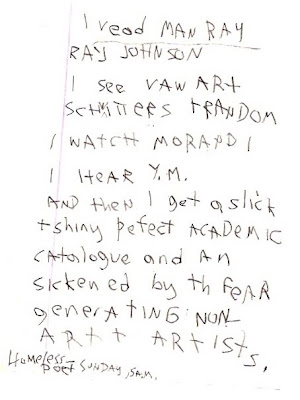 I read MAN RAY
RAY JOHNSON
I see VAW ART
SCHMITTERS + RANDOM
I WATCH MORANDI
I HEAR Y.M.
AND then I get a slick
+ shiny pefect ACADEMIC
catalogue and AN
sickened by th FEAR
generATING NON
ART + ARTISTS.
Homeless
Poet SUNDAY, 5AM.